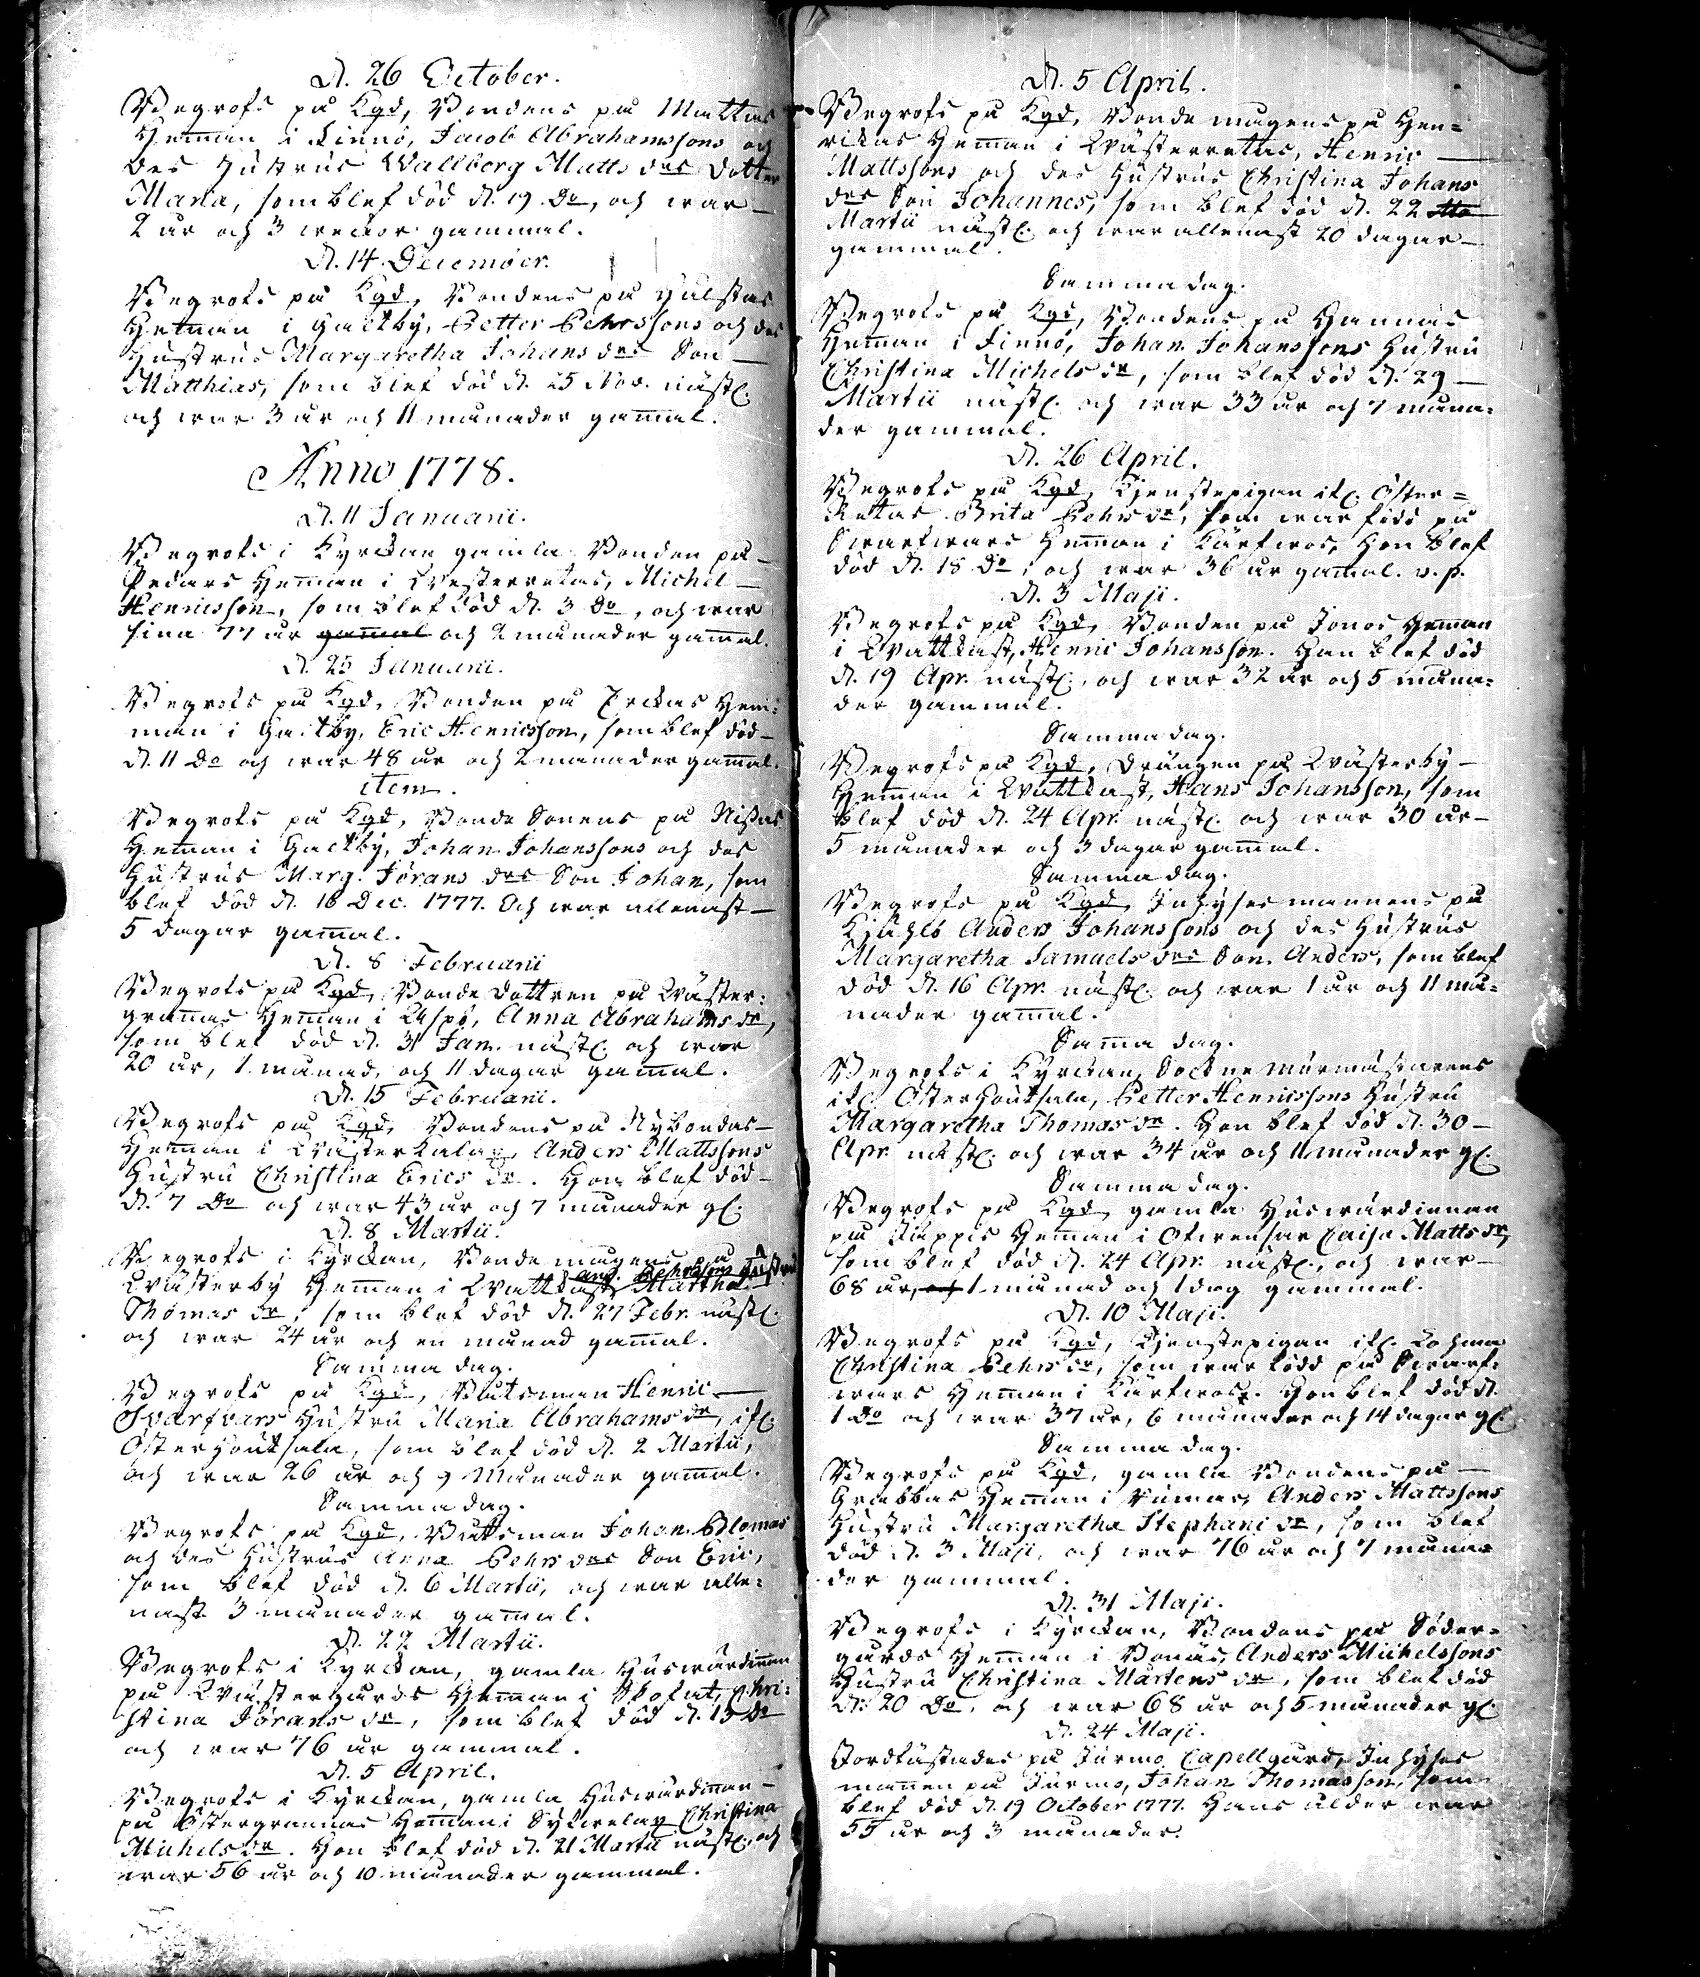 D. 26 October.
Begrofs på Kgd, Bondens på Mattas
Hemman i Finnö, Jacob Abrahamssons och
des Hustrus Wallborg Matts drs Dotter
Maria, som blef död d. 19 Do, och war
2 år och 3 weckor gammal.
D. 14 December.
Begrofs på Kgd, Bondens på Julstas
Heman i Gackby, Petter Pehrssons och des
Hustrus Margaretha Johans drs Son
Matthias, som blef död d. 25 Nov. nästl.
och war 3 år och 11 månader gamal.
Anno 1778.
D. 11 Januarii.
Begrofs i Kyrckan gamla Bonden på
Pedars Heman i Westerretas, Michel
Henricsson, som blef död d. 3 Do, och war
sina 77 år gamal och 2 månader gamal.
D. 25 Januarii.
Begrofs på Kgd, Bonden på Erckas Hem=
man i Gackby, Eric Henricsson, som blef död
d. 11 Do och war 48 år och 2 månader gamal.
item.
Begrofs på Kgd, Bonde Sonens på Nissas
Heman i Gackby, Johan Johanssons och des
Hustrus Marg. Jörans drs Son Johan, som
blef död d. 18 Dec. 1777. Och war allenast
5 dagar gamal.
D. 8 Februarii
Begrofs på Kgd, Bonde dottren på Wäster=
grannas Heman i Aspö, Anna Abrahams dr,
som blef död d. 31 Jan. nästl. och war
20 år, 1 månad, och 11 dagar gamal.
D. 15 Februarii.
Begrofs på Kgd, Bondens på Nybondas
Heman i Wästerkalax, Anders Mattssons
Hustru Christina Erics dr. Hon blef död
d. 7 Do och war 43 år och 7 månader gl.
D. 8 Martii.
Begrofs i Kyrckan, Bonde mågens på
And. Hustru
Wästerby Heman i Wattkast Martha
Thomas dr, som blef död d. 27 Febr. nästl.
och war 24 år och en månad gamal.
Samma dag.
Begrofs på Kgd, Båtsman Henric
Svarfvars Hustru Maria Abrahams dr, ifl.
Österhoutsala, som blef död d. 2 Martii,
och war 26 år och 9 Månader gamal.
Samma dag.
Begrofs på Kgd, Båtsman Johan Blomas
och des Hustrus Anna Pehrs drs Son Eric,
som blef död d. 6 Martii, och war alle=
nast 3 månader gamal.
D. 22 Martii.
Begrofs i Kyrckan, gamla Huswärdinnan
på Wästergårds Heman i Skofat, Chri=
stina Jörans dr, som blef död d. 13 Do
och war 76 år gammal.
D. 5 April.
Begrofs i Kyrckan, gamla Huswärdinnan
på Östergrannas Heman i Sydwelax Christina
Michels dr. Hon blef död d. 21 Martii nästl. och
war 56 år och 10 månader gammal.
D. 5 April.
Begrofs på Kgd, Bonde mågens på Hen=
rickas Heman i Wästerretas, Henric
Mattssons och des Hustrus Christina Johans
drs Son Johannes, som blef död d. 22
Martii nästl. och war allenast 20 dagar
gammal.
Samma dag.
Begrofs på Kgd, Bondens på Hannus
Heman i Finnö, Johan Johanssons Hustru
Christina Michels dr, som blef död d. 29
Martii nästl. och war 33 år och 7 måna=
der gammal.
D. 26 April.
Begrofs på Kgd, Tjenstepigan ifl. Öster=
Retas Brita Pehrs dr, som war född på
Swarfwars Heman i Kärfwos. Hon blef
död d. 18 Do, och war 36 år gamal. v. p.
D. 3 Maji.
Begrofs på Kgd, Bonden på Jonos Heman
i Wattkast, Henric Johansson. Han blef död
d. 19 Apr. nästl., och war 32 år och 5 måna=
der gammal.
Samma dag.
Begrofs på Kgd, Drängen på Wästerby
Heman i Wattkast, Hans Johansson, som
blef död d. 24 Apr. nästl. och war 30 år
5 månader och 3 dagar gamal.
Samma dag.
Begrofs på Kgd, Inhyses mannens på
Kjuhlö Anders Johanssons och des Hustrus
Margaretha Samuels drs Son Anders, som blef
död d. 16 Apr. nästl. och war 1 år och 11 må=
nader gamal.
Samma dag.
Begrofs i Kyrckan, Sockne murmästarens
ifl. Österhoutsala, Petter Henricssons Hustru
Margaretha Thomas dr. Hon blef död d. 30
Apr. nästl. och war 34 år och 11 månader gl.
Samma dag.
Begrofs på Kgd, gamla Huswärdinnan
på Heman i Ofwensar Caisa Matts dr,
som blef död d. 24 Apr. nästl., och war
68 år, och 1 månad och 1 dag gammal.
D. 10 Maji.
Begrofs på Kgd, Tjenstepigan ifl. Lohma
Christina Pehrs dr, som war född på Swarf=
wars Heman i Kärfwos. Hon blef död d.
1 Do och war 37 år, 6 månader och 14 dagar gl.
Samma dag.
Begrofs på Kgd, gamla Bondens på
Grabbas Heman i Anders Mattssons
Hustru Margaretha Stephani dr, som blef
död d. 3 Maji, och war 76 år och 7 måna
der gammal.
D. 31 Maji.
Begrofs i Kyrckan, Bondens på Söder=
gårds Heman i Bonäs, Anders Michelssons
Hustru Christina Mårtens dr, som blef död
d. 20 Do, och war 68 år och 5 månader gl.
D. 24 Maji.
Jordfästades på Jurmo Capellgård, Inhyses
mannen på Jurmo, Johan Thomasson, som
blef död d. 19 October 1777. Hans ålder war
55 år och 3 månader.